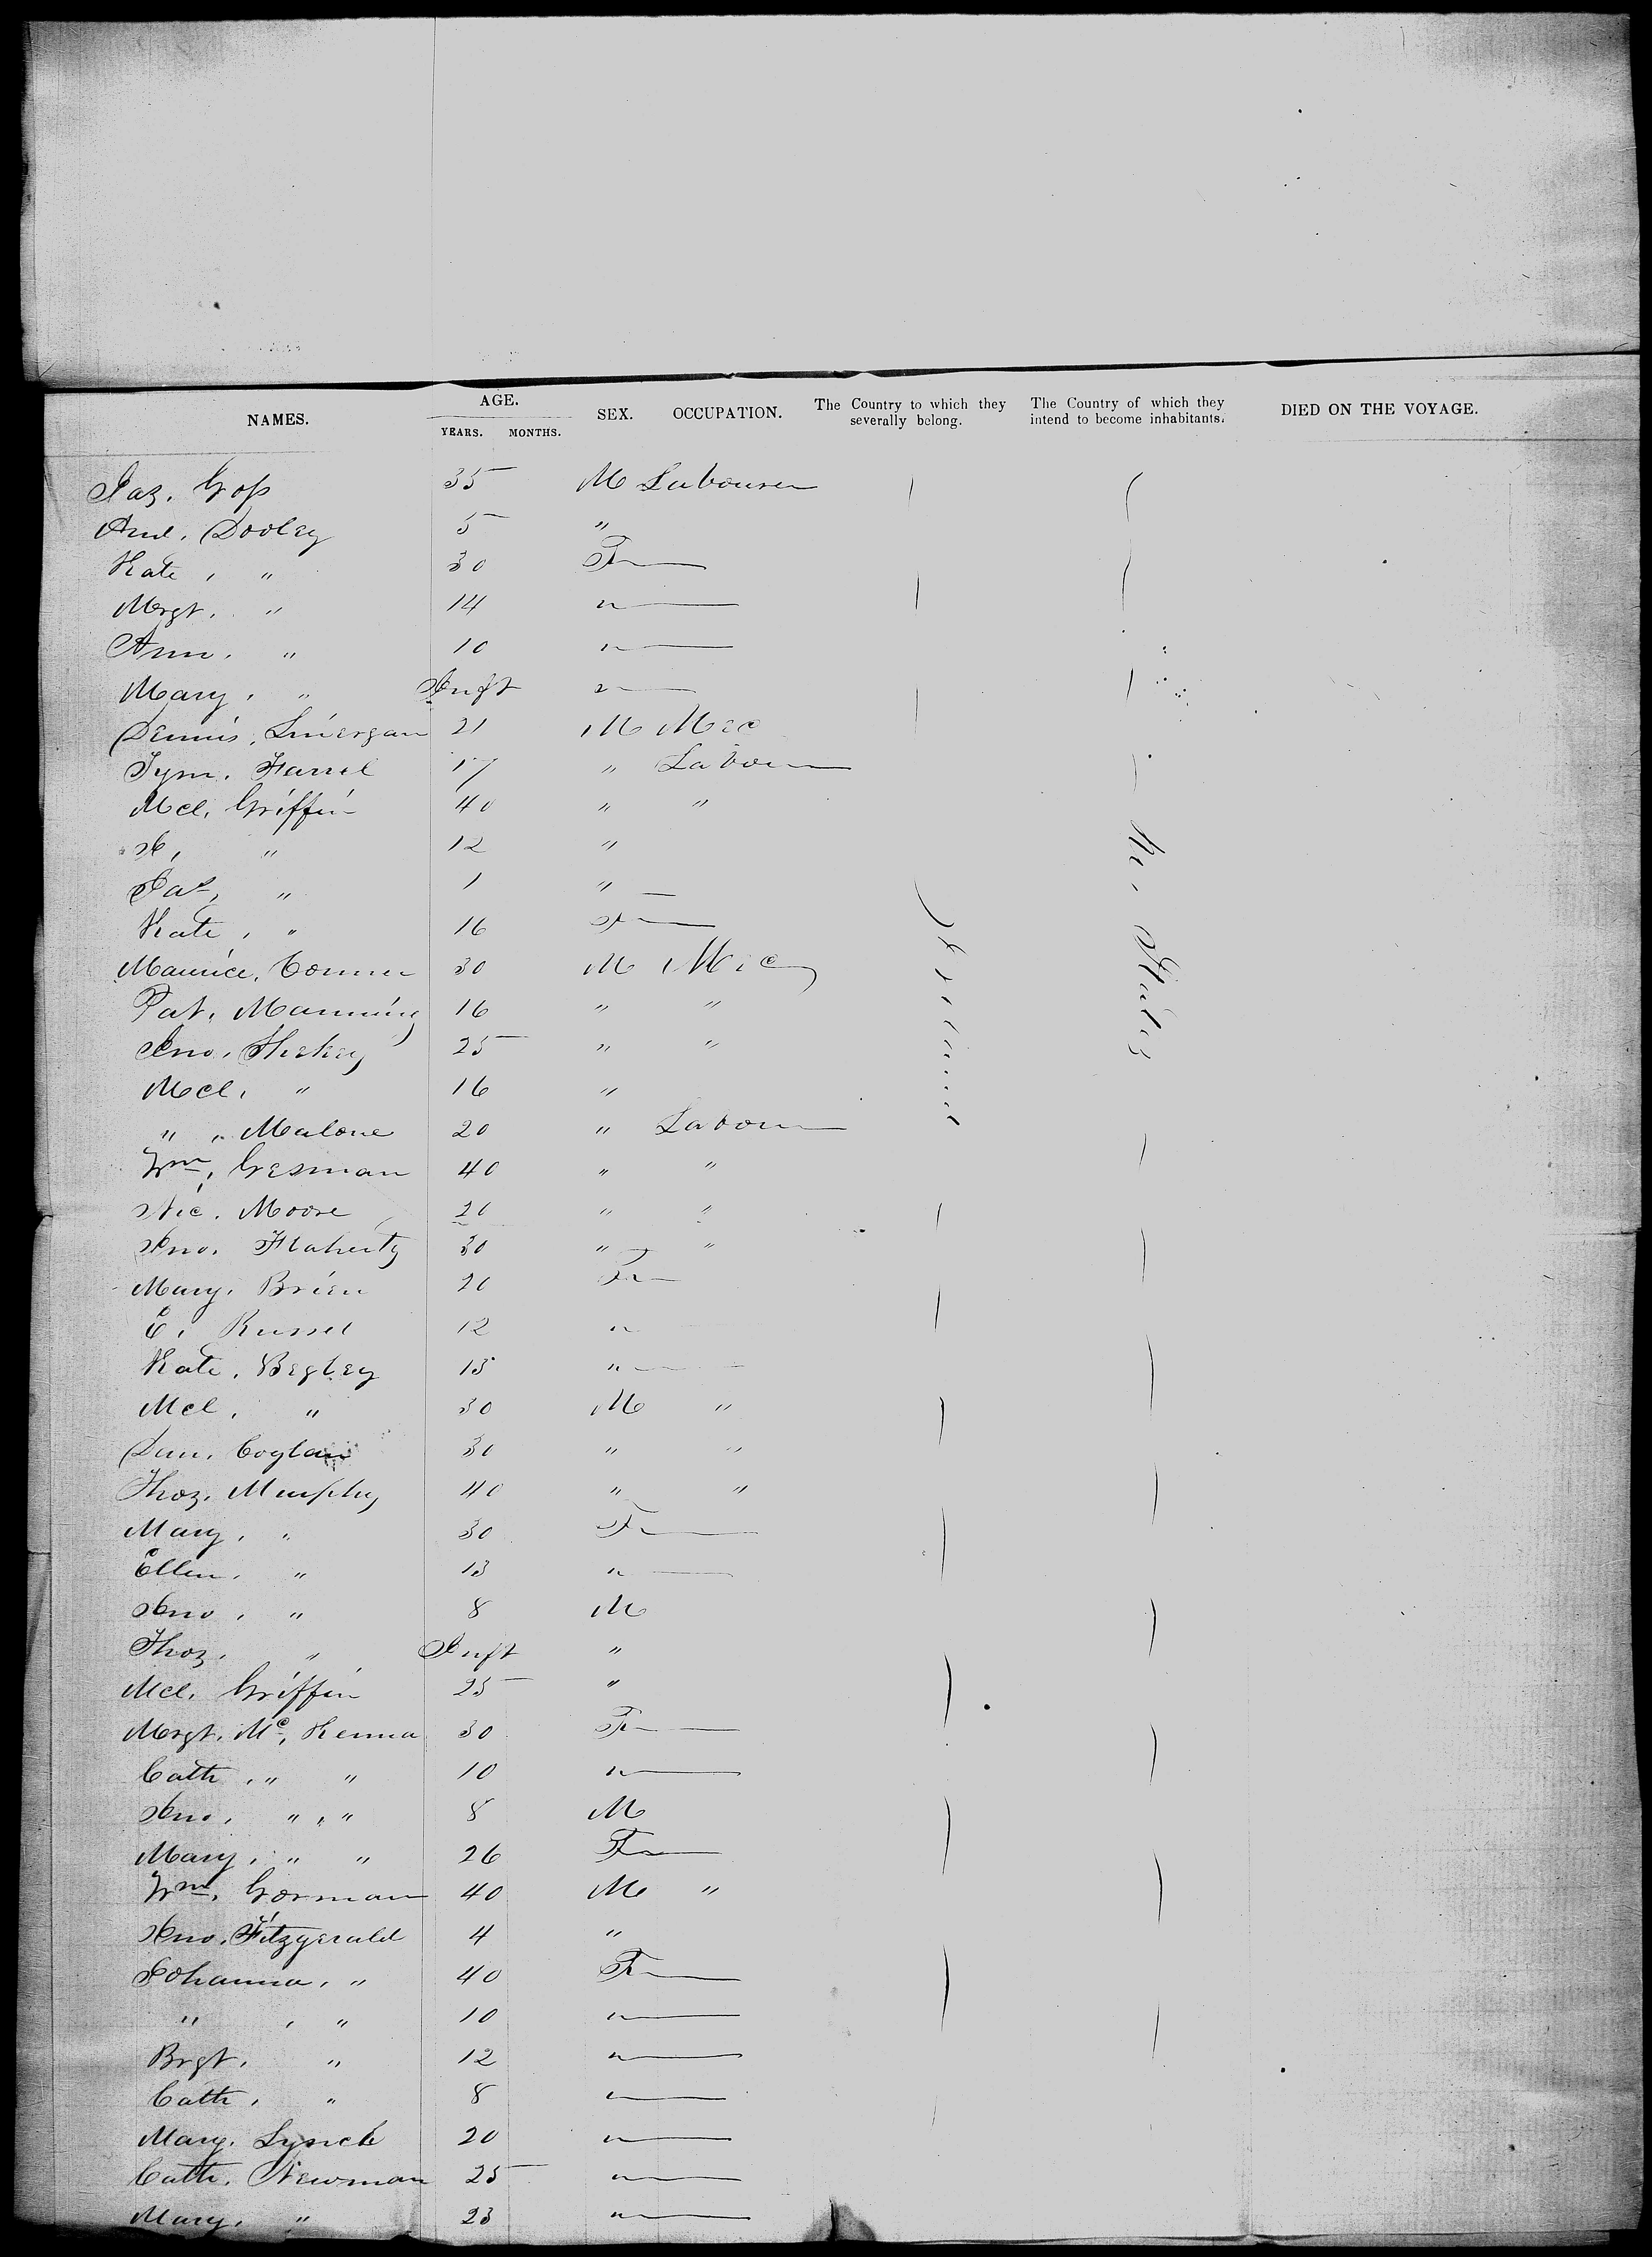 NAMES. AGE. YEARS. MONTHS. SEX. OCCUPATION. The Country to which they severally belong. The Country of which they intend to become inhabitants. DIED ON THE VOYAGE.
Jas. Goss 35 M Labourer
And. Dooley 5 "
Kate, " 30 F
Mrgt. " 14 "
Ann. " 10 "
Mary, " Inft "
Dennis, 21 M Mec
Tym. Farrel 17 " Labour
Mcl. Griffin 40 " "
" 12 "
Pat, " 1 "
Kate, " 16 F
Maurice, Conner 30 M Mec
Pat, Manning 16 " "
Jno. 25 " "
Mcl, " 16 "
" " Malone 20 " Labour
Wm, 40 " "
Nic. Moore 20 " "
Jno. Flaherty 30 " "
Mary. Brien 20 F
E. Russel 12 "
Kate, Begley 13 "
Mcl, " 30 M "
Dan. Coglan 30 " "
Thos. Murphy 40 " "
Mary, " 30 F
Ellen, " 13 "
Jno, " 8 M
Thos, " Inft "
Mcl. Griffin 25 "
Mrgt. Mc, Kenna 30 F
Cath, " " 10 "
Jno, " " 8 M
Mary, " " 26 F
Wm, Gorman 40 M "
Jno. Fitzgerald 4 "
Johanna, " 40 F
" , " 10 "
Brgt, " 12 "
Cath, " 8 "
Mary. Lynch 20 "
Cath. Newman 25 "
Mary, " 23 "
Ireland
U. States